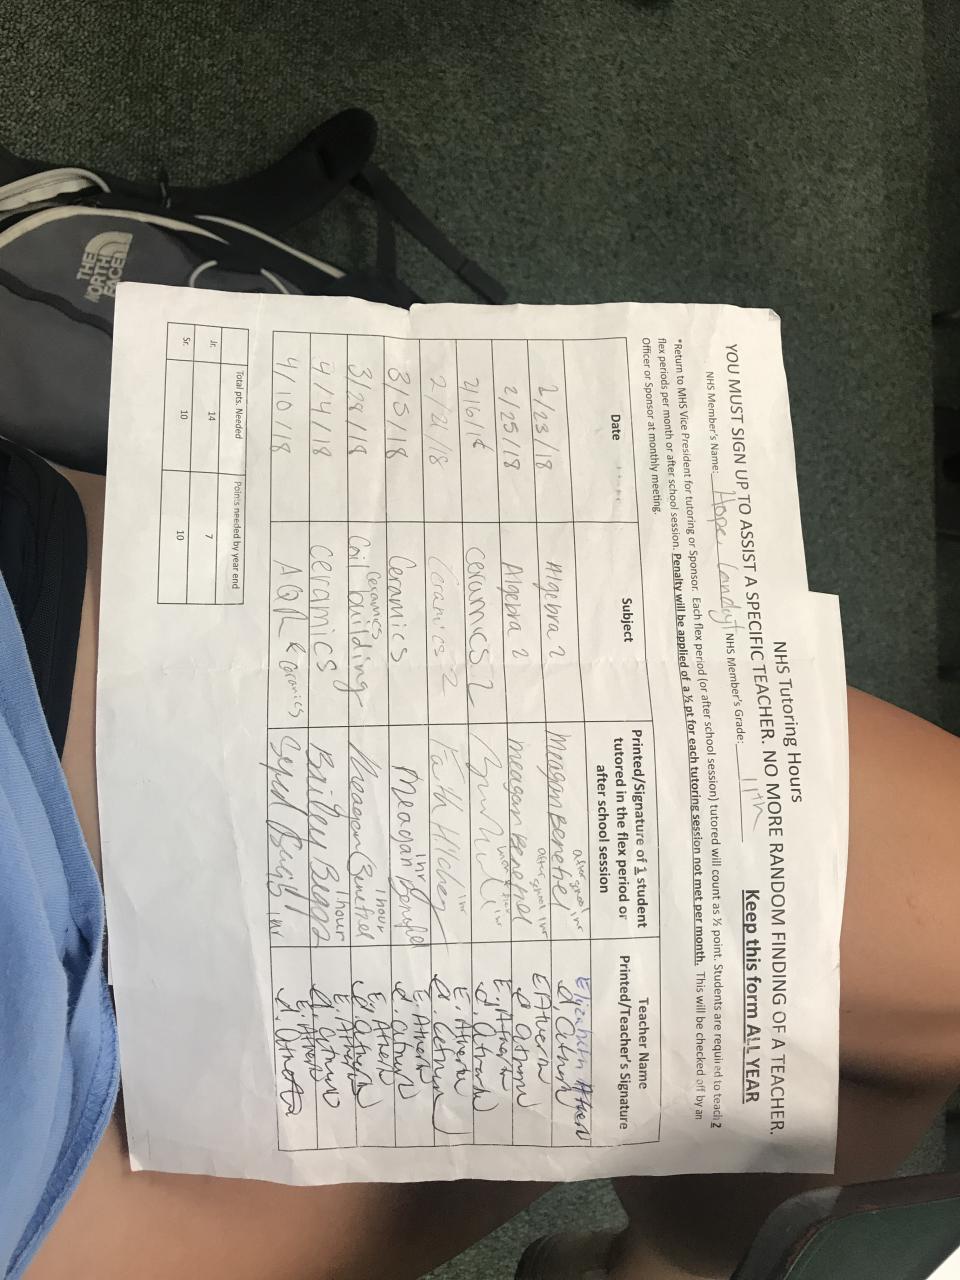 NHS Tutoring Hours
YOU MUST SIGN UP TO ASSIST A SPECIFIC TEACHER. NO MORE RANDOM FINDING OF A TEACHER.
NHS Member's Name: Hope NHS Member's Grade: 11th Keep this form ALL YEAR
*Return to MHS Vice President for tutoring or Sponsor. Each flex period (or after school session) tutored will count as ½ point. Students are required to teach 2
flex periods per month or after school session. Penalty will be applied of a ½ pt for each tutoring session not met per month. This will be checked off by an
Officer or Sponsor at monthly meeting.
Date Subject Printed/Signature of 1 student tutored in the flex period or after school session Teacher Name Printed/Teacher's Signature
after school 1hr
2/23/18 Algebra 2 Meagan Benefiel Elizabeth Ahern
after school 1hr
2/25/18 Algebra 2 Meagan Benefiel E Ahern
2/6/18 Ceramics 2 1hr E. Ahern
2/21/18 Ceramics 2 Faith 1hr E. Ahern
3/5/18 Ceramics Meagan Benefiel 1hr E. Ahern
3/28/18 Ceramics Coil building Meagan Benefiel 1 hour E. Ahern
4/4/18 Ceramics Bailey Beggs 1 hour E. Ahern
4/10/18 AQR & Ceramics 1hr E. Ahern
Total pts. Needed Points needed by year end
Jr. 14 7
Sr. 10 10
THE
NORTH
FACE